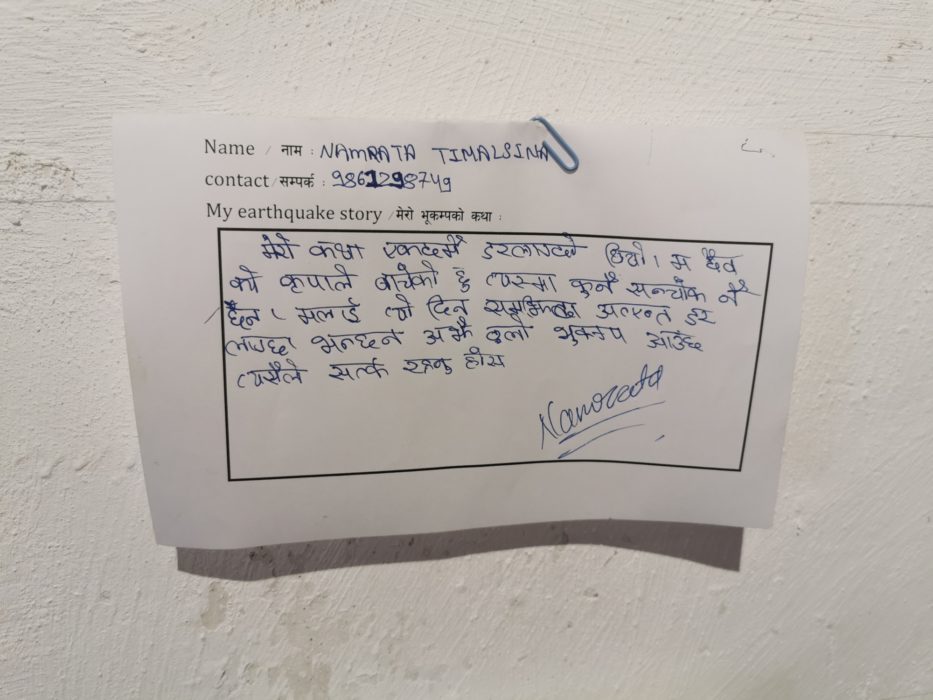 Name / नाम : NAMRATA TIMALSINA
contact / सम्पर्क : 9861298749
My earthquake story / मेरो भूकम्पको कथा :
मेरो कथा एकदमै डरलाग्दो थियो। म दैव
को कृपाले बाचेको हु त्यस्मा कुनै सन्चोक नै
छैन। मलाई त्यो दिन सम्झिदा अत्यन्त डर
लाग्छ भन्छन अझै ठुलो भुकम्प आउँछ
त्यसैले सर्त्क रहनु होस
Namrata